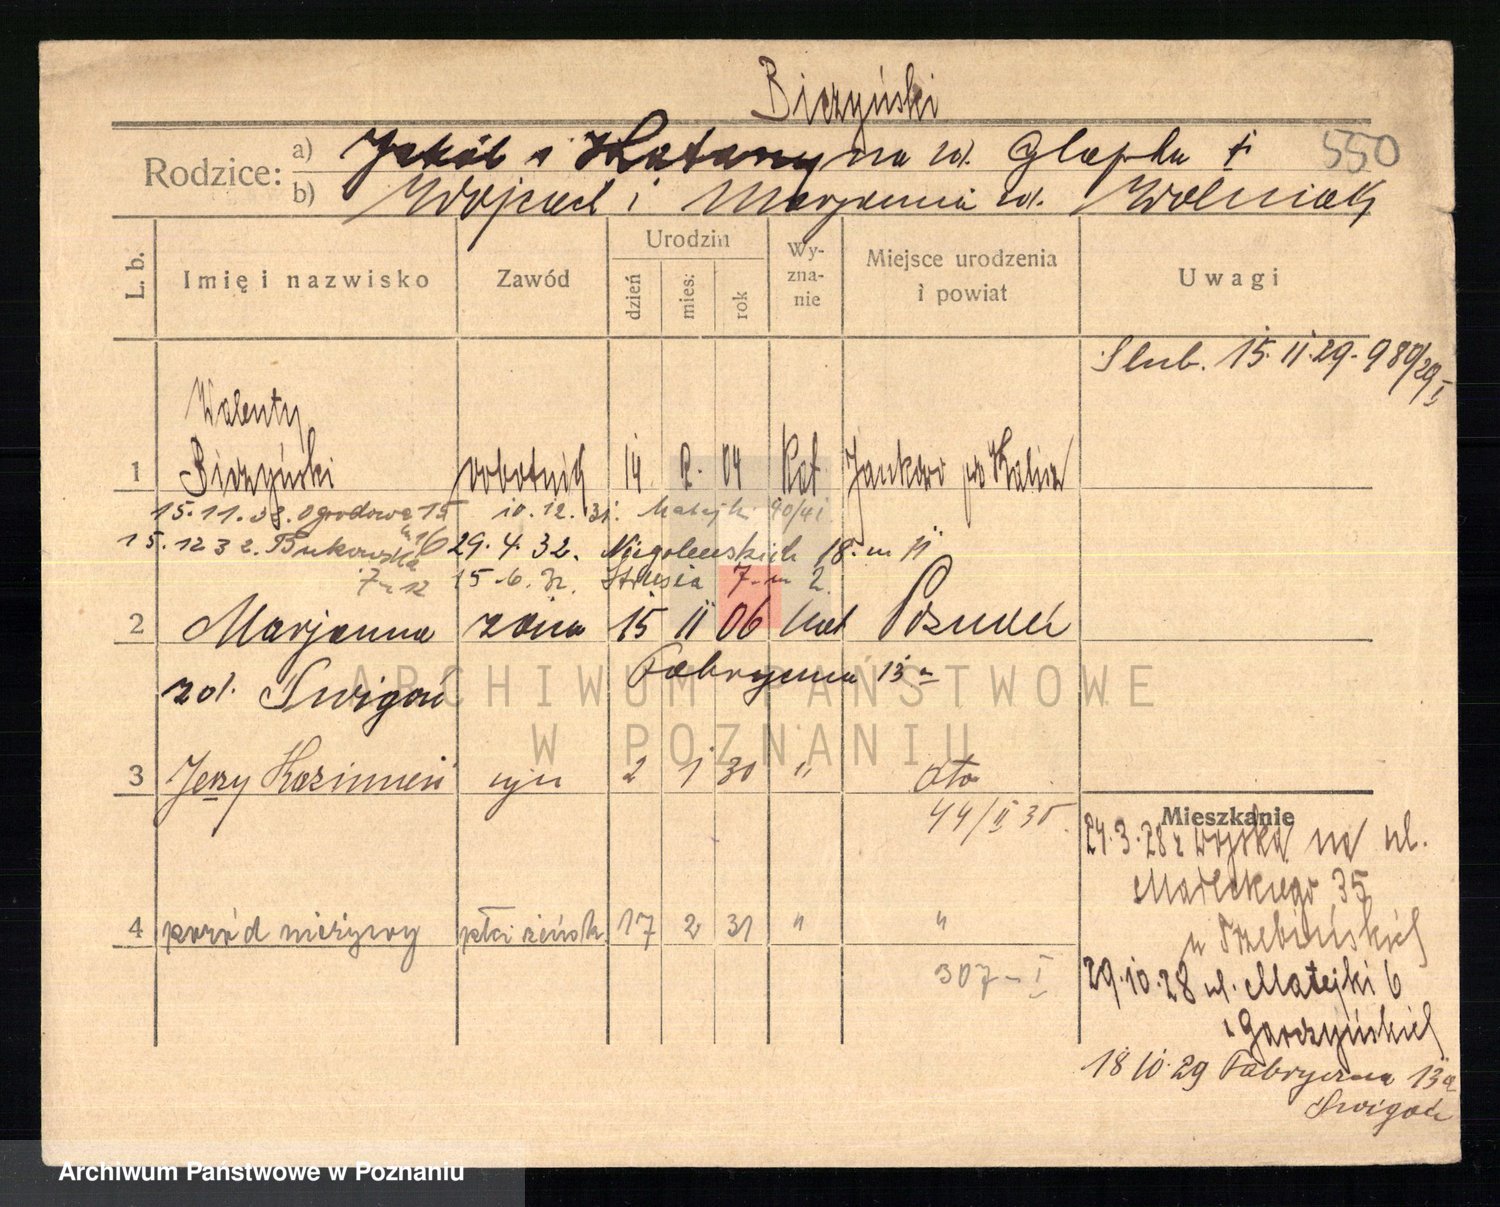 Biczyński
550
Rodzice:
a) Jakób i Katarzyna zd. Glapka †
b) Wojciech i Marjanna zd. Woźniak
L. b.
Imię i nazwisko
Zawód
Urodzin
dzień
mies:
rok
Wy-
zna-
nie
Miejsce urodzenia
i powiat
Uwagi
Ślub. 15.II.29. 989/29 I
Walenty
1 Biczyński robotnik 14 2. 04 Kat Jankowo po Kalisz
15.11.38. Ogrodowa 15 10.12.31. Matejki 40/41
15.12 32. Bukowska 29.4.32. Niegolewskich 18. m 11
7 m 12 15.6.32. Strusia 7. m 2.
2 Marjanna żona 15 11 06 kat Poznań
zd. Świgoń Fabryczna 13a
3 Jerzy Kazimierz syn 2 1 30 " dto
44/II 30.
4 poród nieżywy płci żeńsk 17 2 31 " "
307 - I
Mieszkanie
24.3.28 z wojska na ul.
Małeckiego 35
u Trzebińskich
29.10.28 ul. Matejki 6
u Garczyńskich
18 10.29 Fabryczna 13a
Świgoń
ARCHIWUM PAŃSTWOWE
W POZNANIU
Archiwum Państwowe w Poznaniu